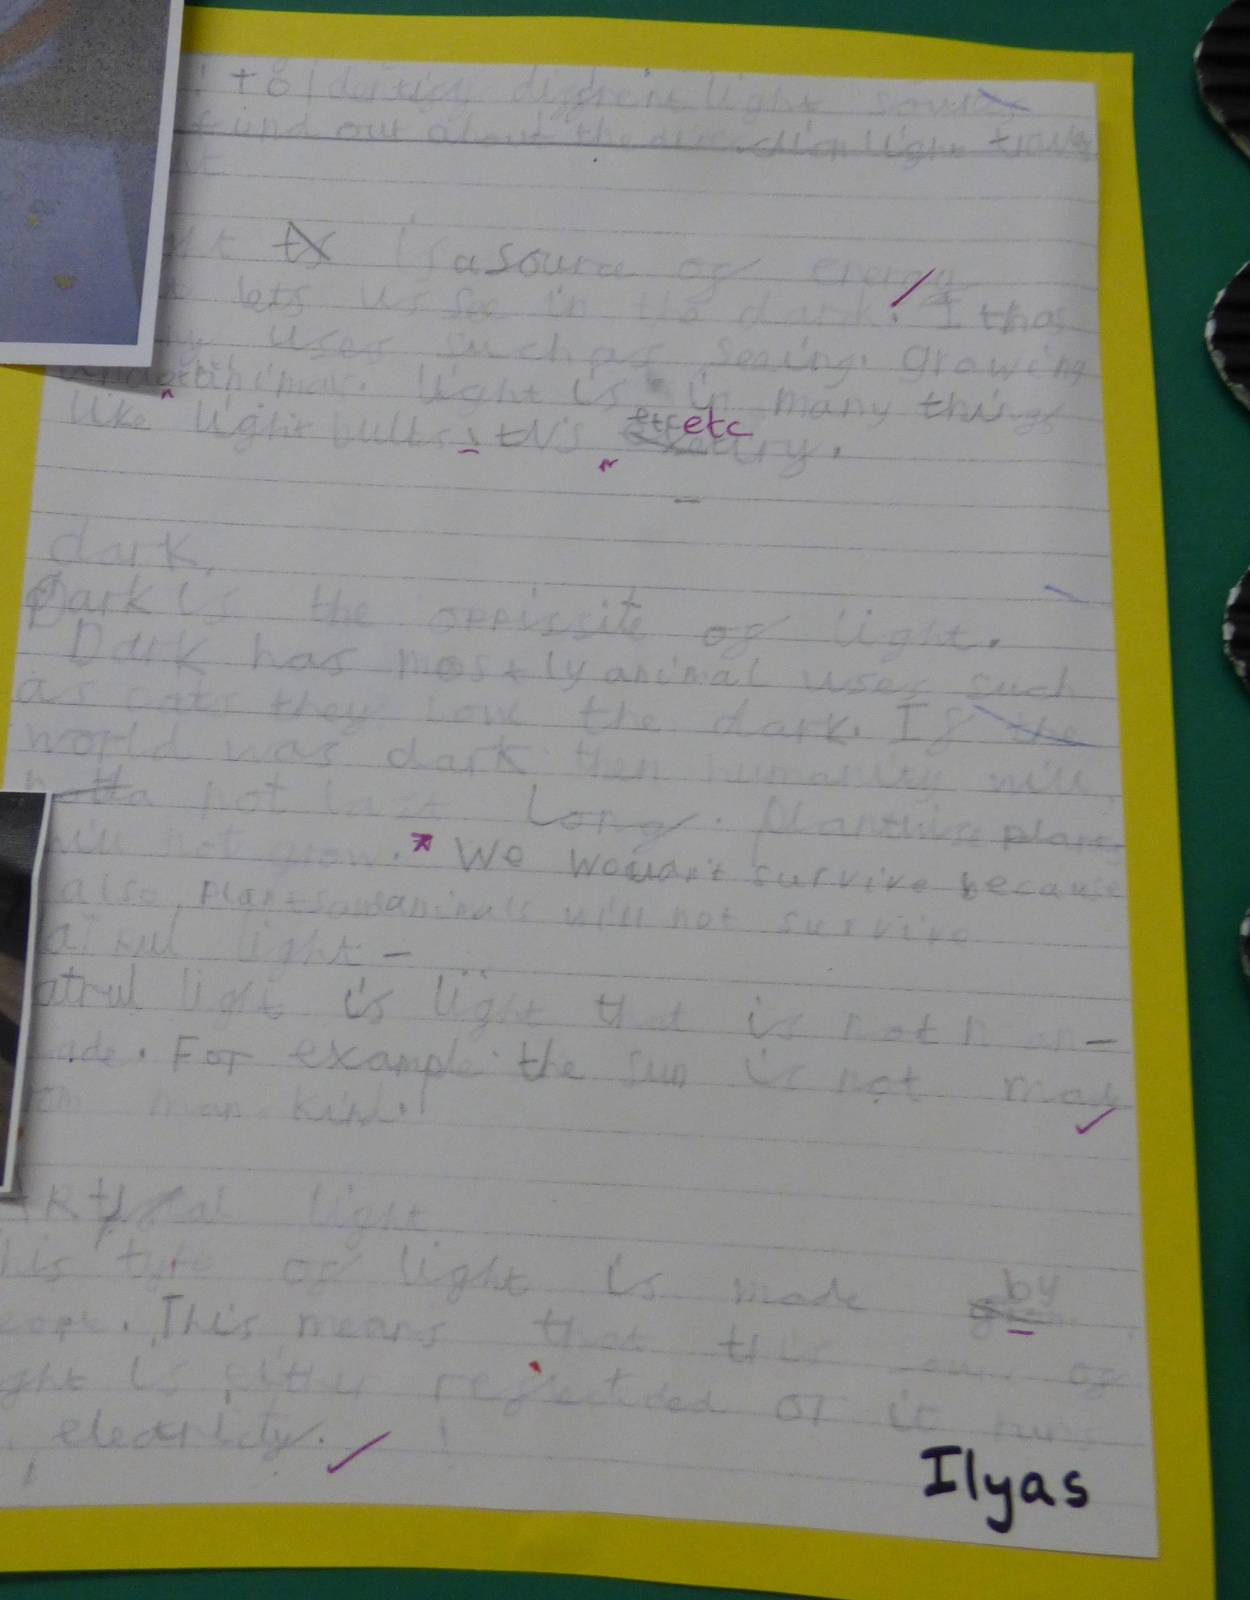 to Identify different light sourc
find out about the direction light travls
is a source of energy
lets us see in the dark. It has
uses such as seeing. Growing
light is in many things
like light bulbs, tV's etc etc
dark,
Dark is the oppissite of light.
Dark has mostly animal uses such
as cats they love the dark. If the
world was dark then humanity will
not last long. plants
will not grow. * We wouldn't survive because
also, plants and animals will not survive
light -
atrul light is light that is not man-
ade. For example the sun is not made
man kind.
light
his type of light is made by
This means that this of
ght is either reflectided or it runs
electricity.
Ilyas